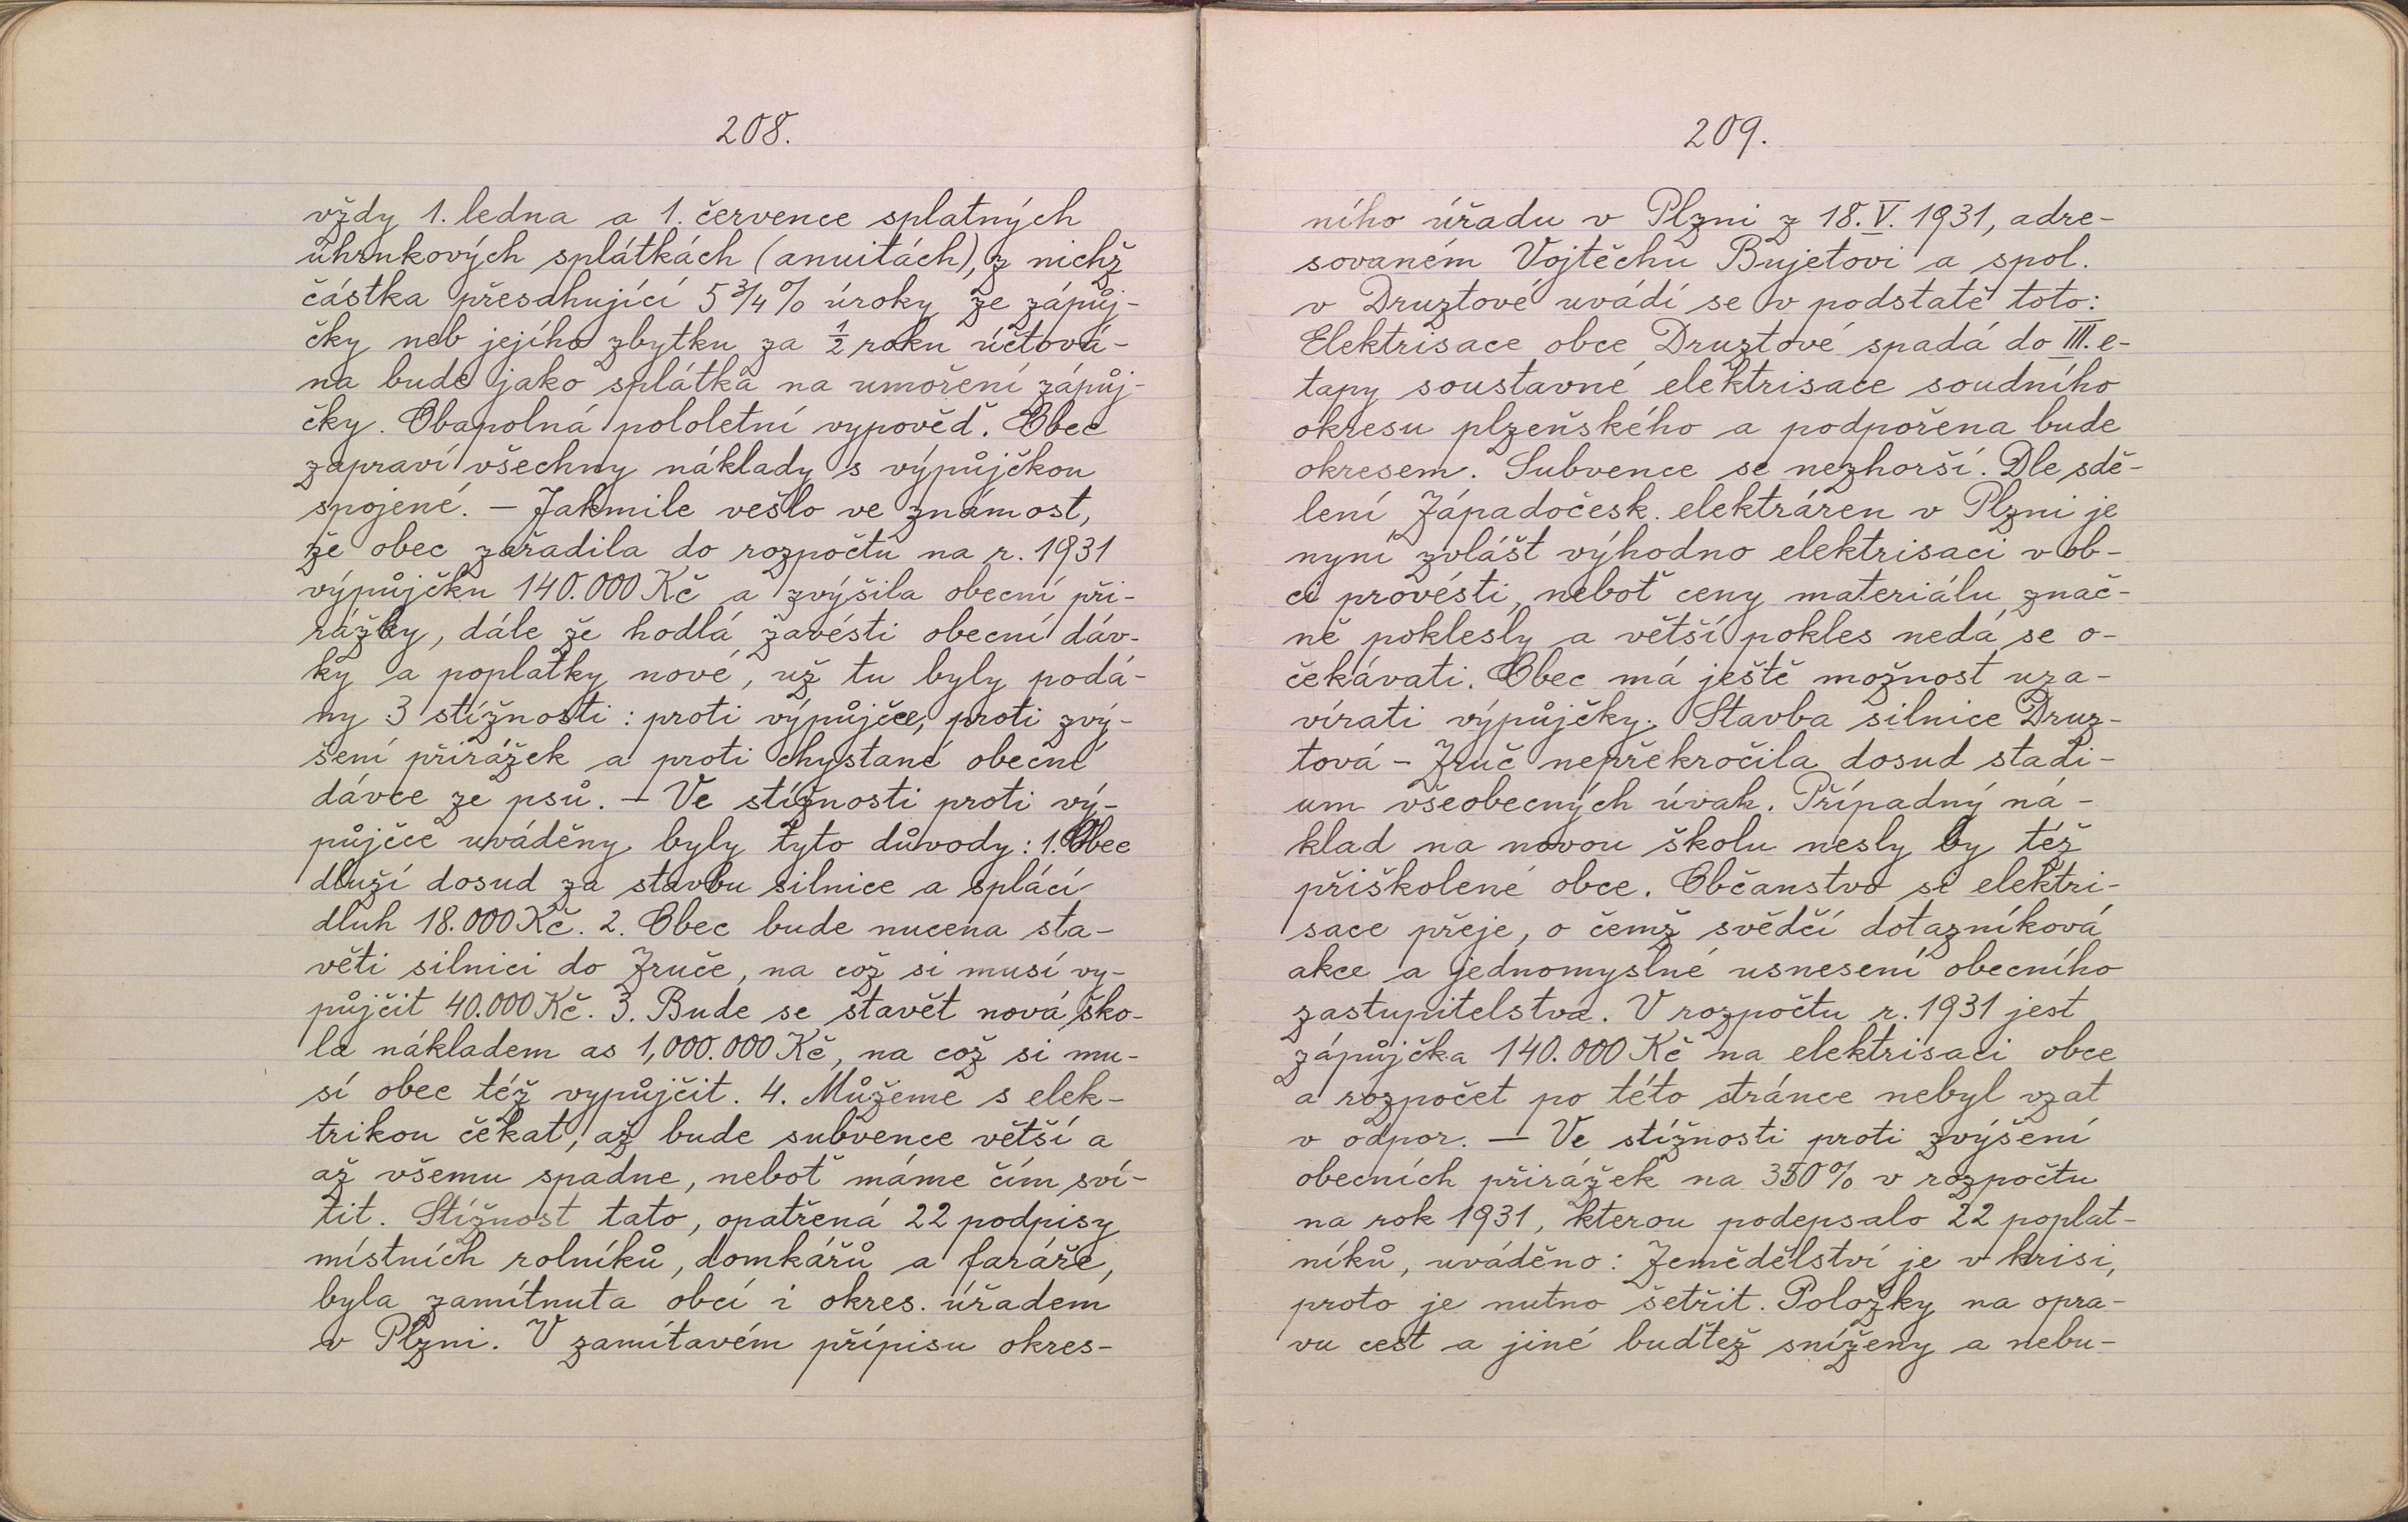 208.
vždy 1. ledna a 1. července splatných
úhrnkových splátkách (anuitách), z nichž
částka přesahující 5 3/4 % úroky ze zápůj-
čky neb jejího zbytku za 1/2 roku účtová-
na bude jako splátka na umoření zápůj-
čky. Obapolná pololetní vypověď. Obec
zapraví všechny náklady s výpůjčkou
spojené. – Jakmile vešlo ve známost,
že obec zařadila do rozpočtu na r. 1931
výpůjčku 140.000 Kč a zvýšila obecní při-
rážky, dále že hodlá zavésti obecní dáv-
ky a poplatky nové, už tu byly podá-
ny 3 stížnosti: proti výpůjčce, proti zvý-
šení přirážek a proti chystané obecné
dávce ze psů. – Ve stížnosti proti vý-
půjčce uváděny byly tyto důvody: 1. Obec
dluží dosud za stavbu silnice a splácí
dluh 18.000 Kč. 2. Obec bude nucena sta-
věti silnici do Zruče, na což si musí vy-
půjčit 40.000 Kč. 3. Bude se stavět nová ško-
la nákladem as 1,000.000 Kč, na což si mu-
sí obec též vypůjčit. 4. Můžeme s elek-
trikou čekat, až bude subvence větší a
až všemu spadne, neboť máme čím sví-
tit. Stížnost tato, opatřená 22 podpisy
místních rolníků, domkářů a faráře,
byla zamítnuta obcí i okres. úřadem
v Plzni. V zamítavém přípisu okres-
209.
ního úřadu v Plzni z 18. V. 1931, adre-
sovaném Vojtěchu Bujetovi a spol.
v Druztové uvádí se v podstatě toto:
Elektrisace obce Druztové spadá do III. e-
tapy soustavné elektrisace soudního
okresu plzeňského a podpořena bude
okresem. Subvence se nezhorší. Dle sdě-
lení Západočesk. elektráren v Plzni je
nyní zvlášt výhodno elektrisaci v ob-
ci provésti, neboť ceny materiálu znač-
ně poklesly a větší pokles nedá se o-
čekávati. Obec má ještě možnost uza-
vírati výpůjčky. Stavba silnice Druz-
tová – Zruč nepřekročila dosud stadi-
um všeobecných úvah. Případný ná-
klad na novou školu nesly by též
přiškolené obce. Občanstvo si elektri-
sace přeje, o čemž svědčí dotazníková
akce a jednomyslné usnesení obecního
zastupitelstva. V rozpočtu r. 1931 jest
zápůjčka 140.000 Kč na elektrisaci obce
a rozpočet po této stránce nebyl vzat
v odpor. – Ve stížnosti proti zvýšení
obecních přirážek na 350% v rozpočtu
na rok 1931, kterou podepsalo 22 poplat-
níků, uváděno: Zemědělství je v krisi,
proto je nutno šetřit. Položky na opra-
vu cest a jiné buďtež sníženy a nebu-